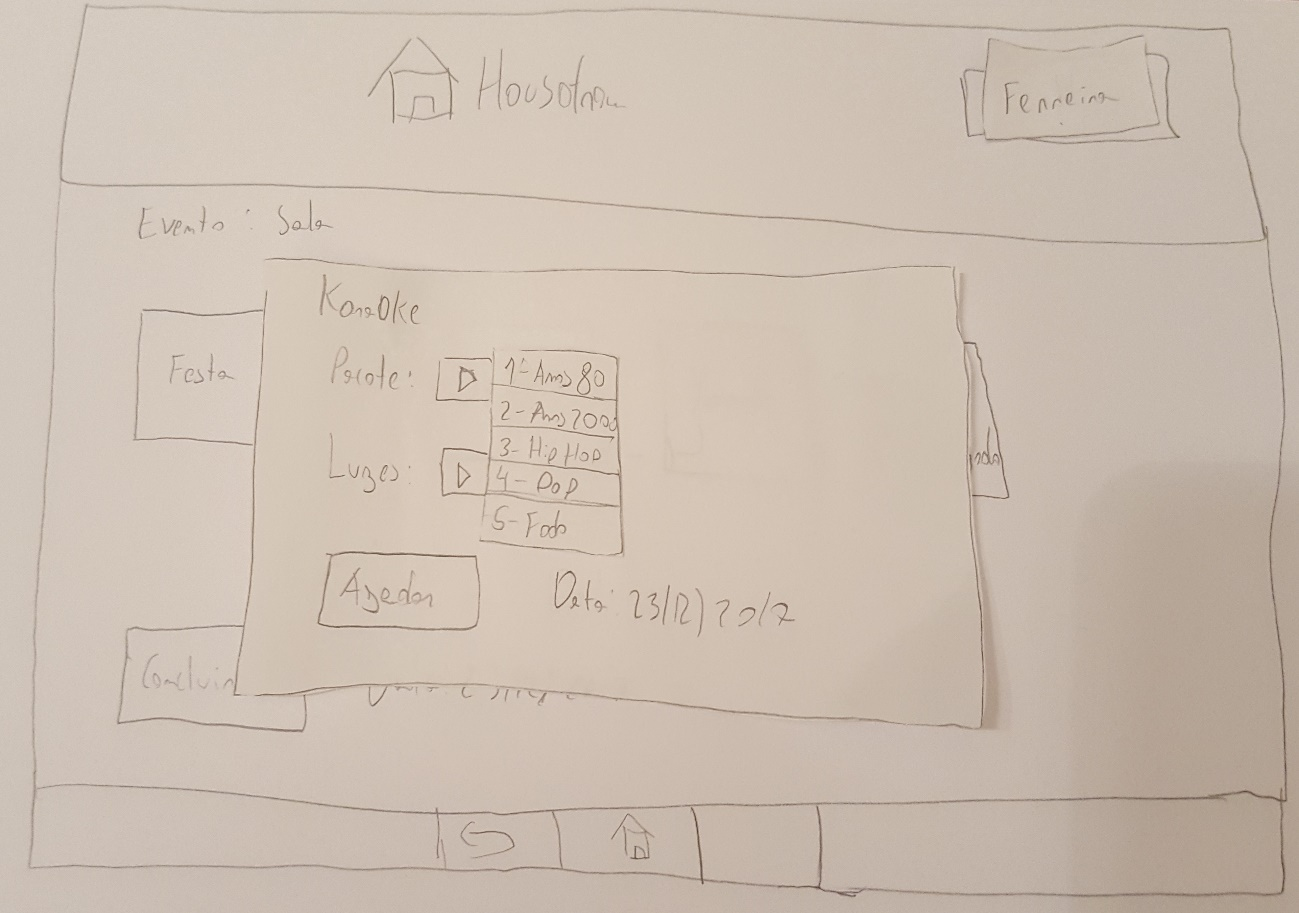 Ferreira
Evento: Sala
Karaoke
Festa
Pacote:
1- Anos 80
2- Anos 2000
3- Hip Hop
4- Pop
5- Fado
Luzes:
Agendar
Data: 23/12/2017
Concluir